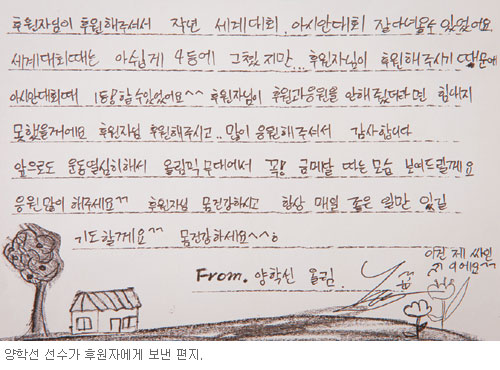 후원자님이 후원해주셔서 작년 세계대회, 아시안대회 잘다녀올수있었어요.
세계대회때는 아쉽게 4등에 그쳤지만.. 후원자님이 후원해주시기 때문에
아시안대회때 1등을할수있었어요^^ 후원자님이 후원과응원을 안해줬더라면 힘내지
못했을거에요 후원자님 후원해주시고.. 많이 응원해주셔서 감사합니다
앞으로도 운동열심히해서 올림픽무대에서 꼭! 금메달 따는모습 보여드릴께요
응원많이 해주세요^^ 후원자님 몸건강하시고 항상 매일 좋은 일만 있길
기도할게요^^ 몸건강하세요^^
이건 제 싸인
이에요^^
From. 양학선 올림.
양학선 선수가 후원자에게 보낸 편지.